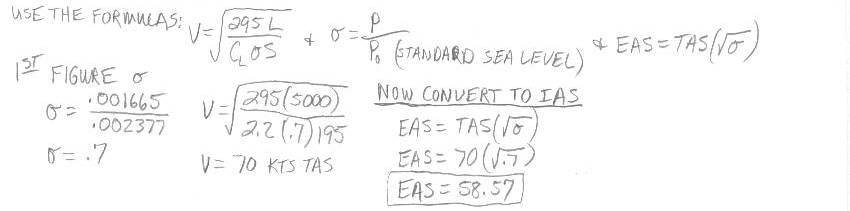 USE THE FORMULAS: V = √(295 L / C_L σ S) & σ = P / P₀ (STANDARD SEA LEVEL) & EAS = TAS(√σ)
1ST FIGURE σ
σ = .001665 / .002377
σ = .7
V = √(295(5000) / 2.2(.7)195)
V = 70 KTS TAS
NOW CONVERT TO IAS
EAS = TAS(√σ)
EAS = 70(√.7)
EAS = 58.57